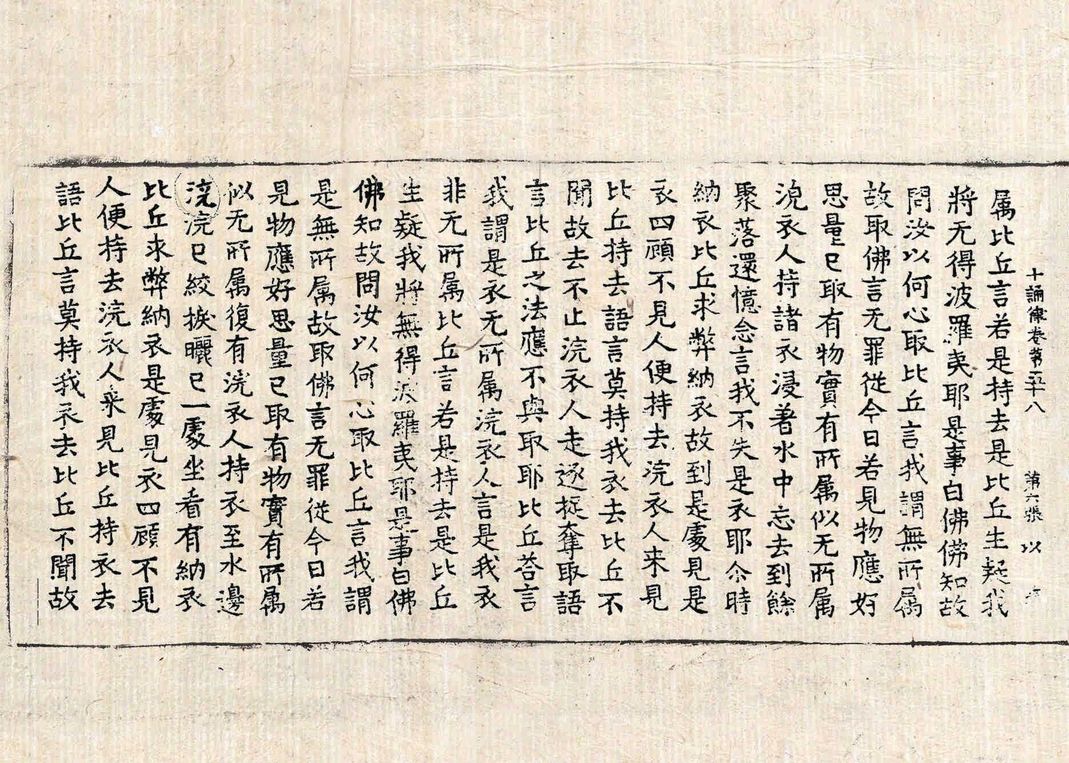 十誦律卷第五十八 第六張 以
属比丘言若是持去是比丘生疑我
將无得波羅夷耶是事白佛佛知故
問汝以何心取比丘言我謂無所属
故取佛言无罪從今日若見物應好
思量已取有物實有所属似无所属
浣衣人持諸衣浸著水中忘去到餘
聚落還憶念言我不失是衣耶尒時
納衣比丘求弊納衣故到是處見是
衣四顧不見人便持去浣衣人来見
比丘持去語言莫持我衣去比丘不
聞故去不止浣衣人走逐捉奪取語
言比丘之法應不與取耶比丘荅言
我謂是衣无所属浣衣人言是我衣
非无所属比丘言若是持去是比丘
生疑我將無得波羅夷耶是事白佛
佛知故問汝以何心取比丘言我謂
是無所属故取佛言无罪從今日若
見物應好思量已取有物實有所属
似无所属復有浣衣人持衣至水邊
浣浣已絞捩曬已一處坐看有納衣
比丘求弊納衣是處見衣四顧不見
人便持去浣衣人来見比丘持衣去
語比丘言莫持我衣去比丘不聞故